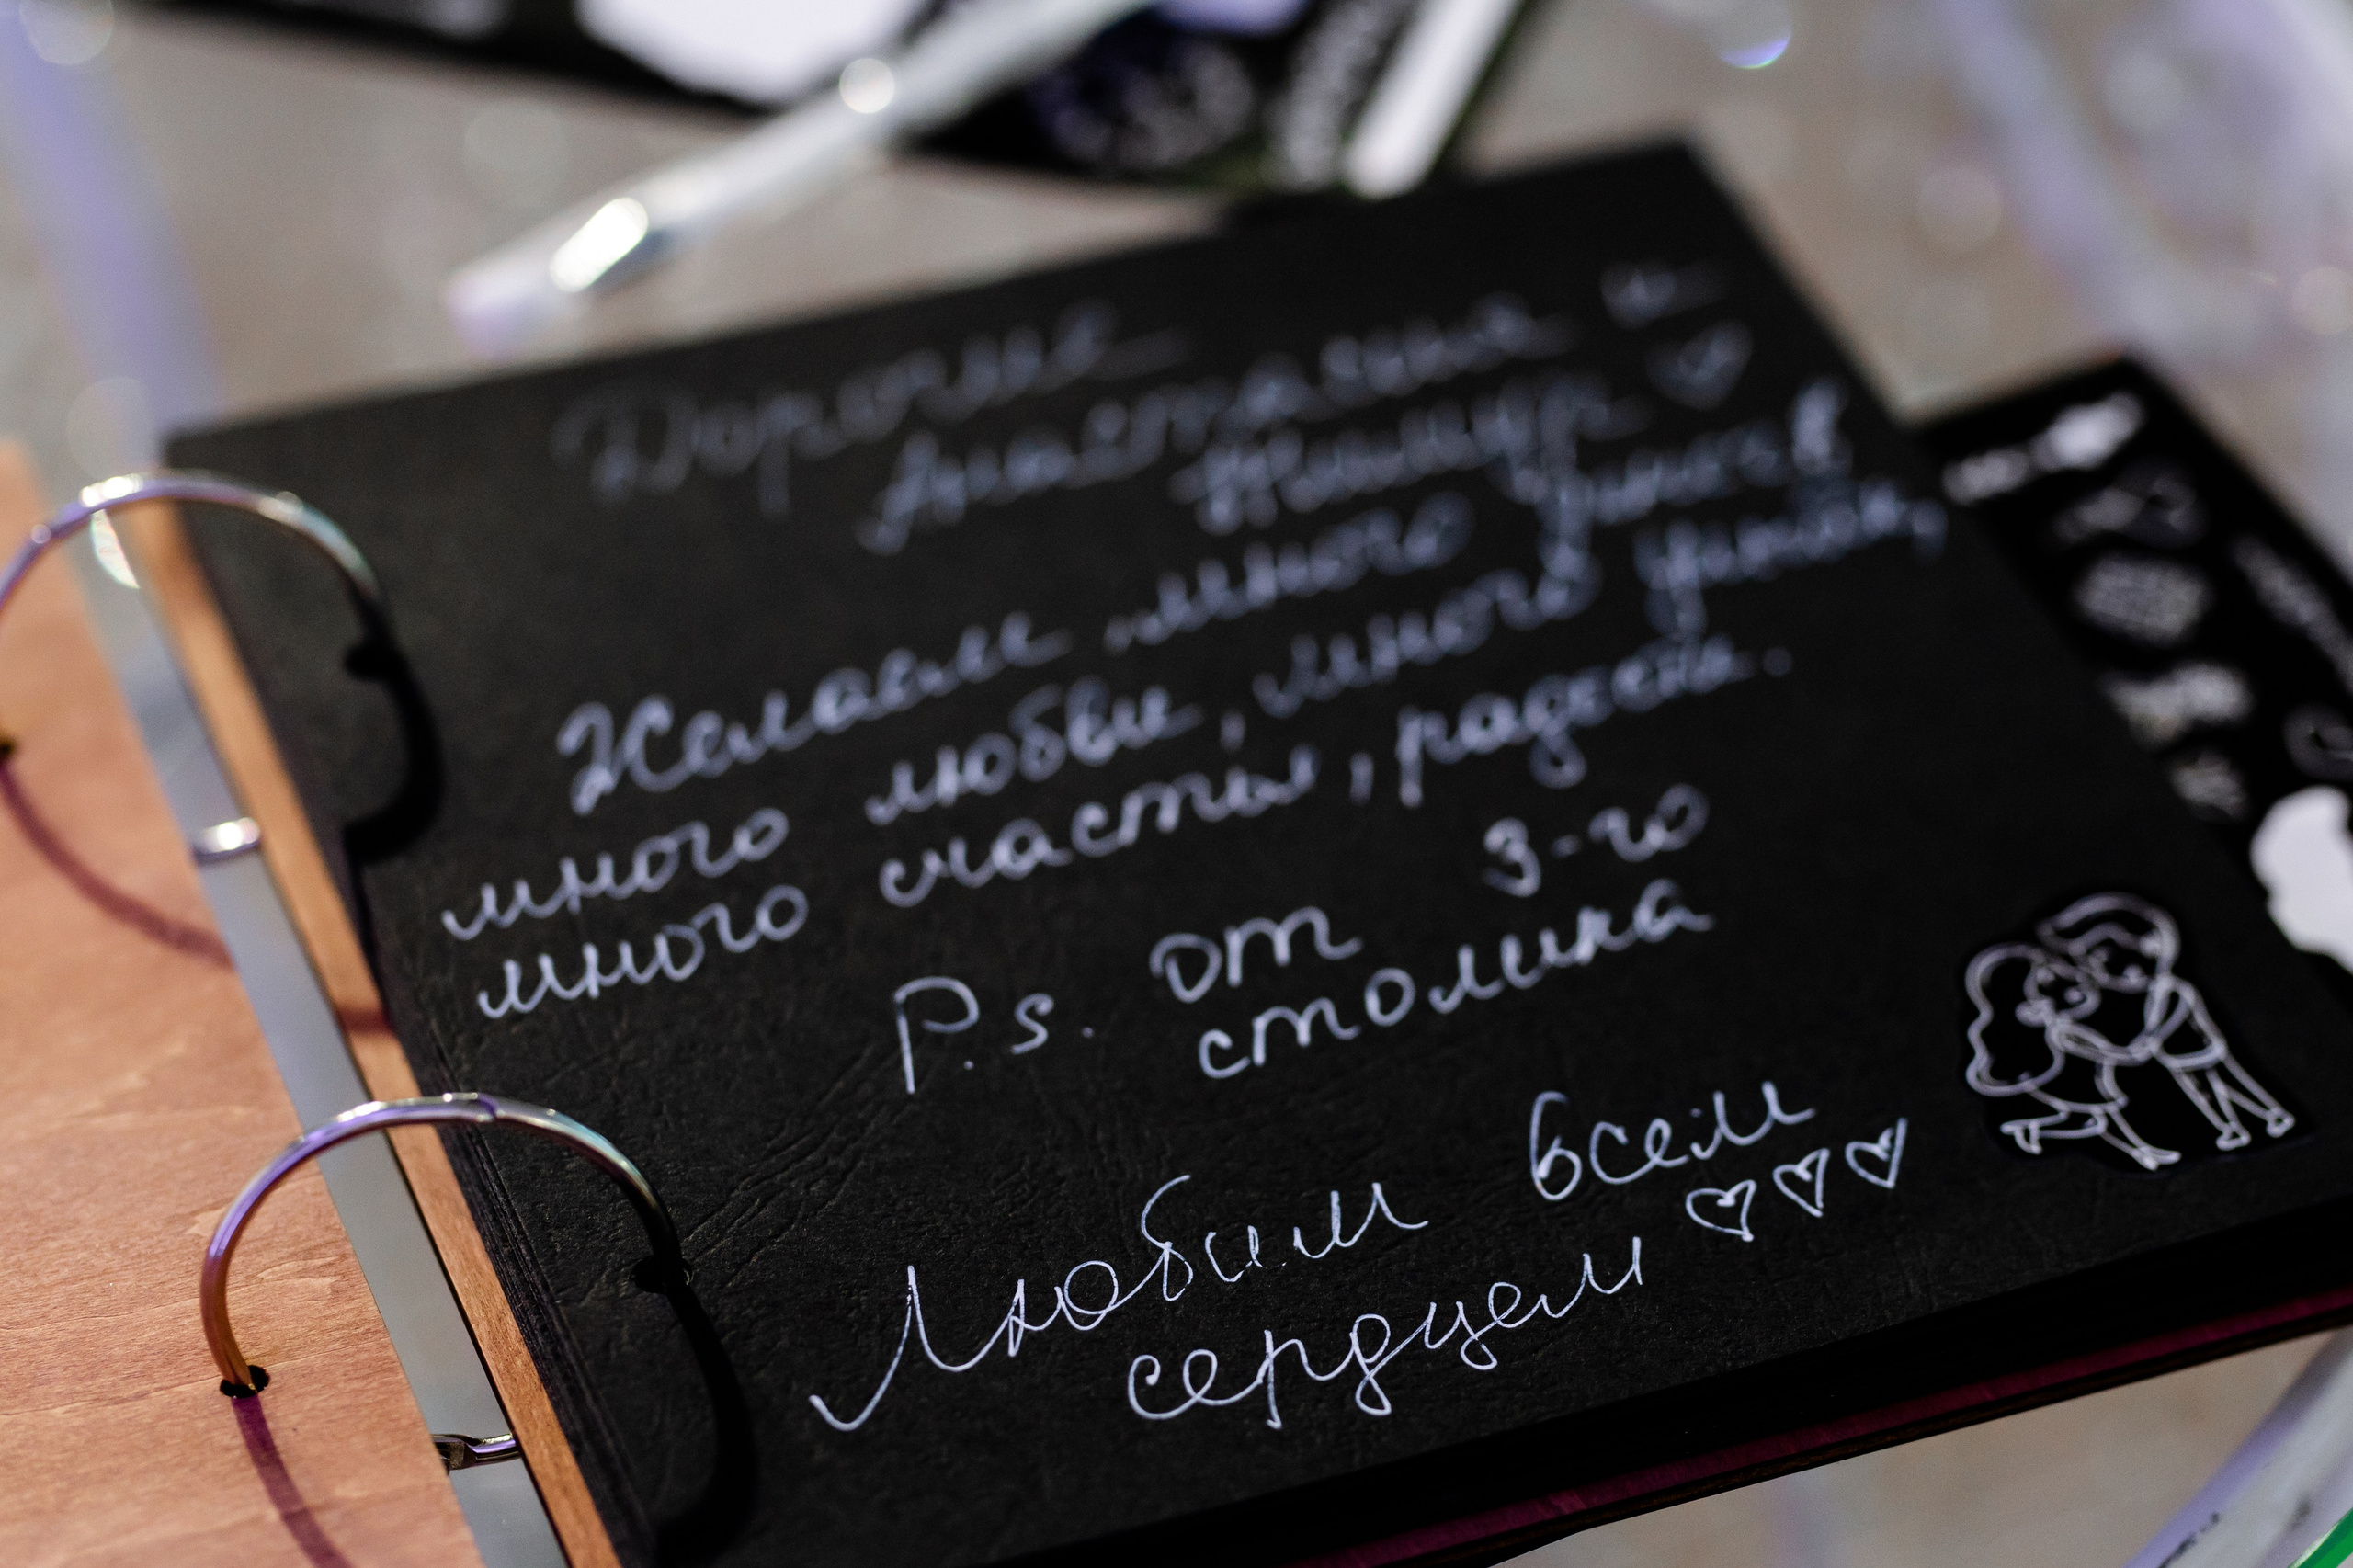 Дорогие
Анастасия и
Тимур
Желаем много
много любви, много улыбок,
много счастья, радости.
P.s. от 3-го
столика
Любим всем
сердцем